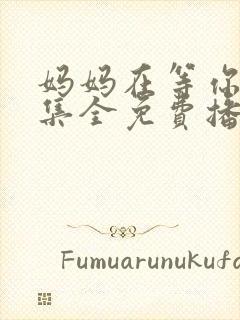 妈妈在等你
集全免費播
Fumuarunukufa